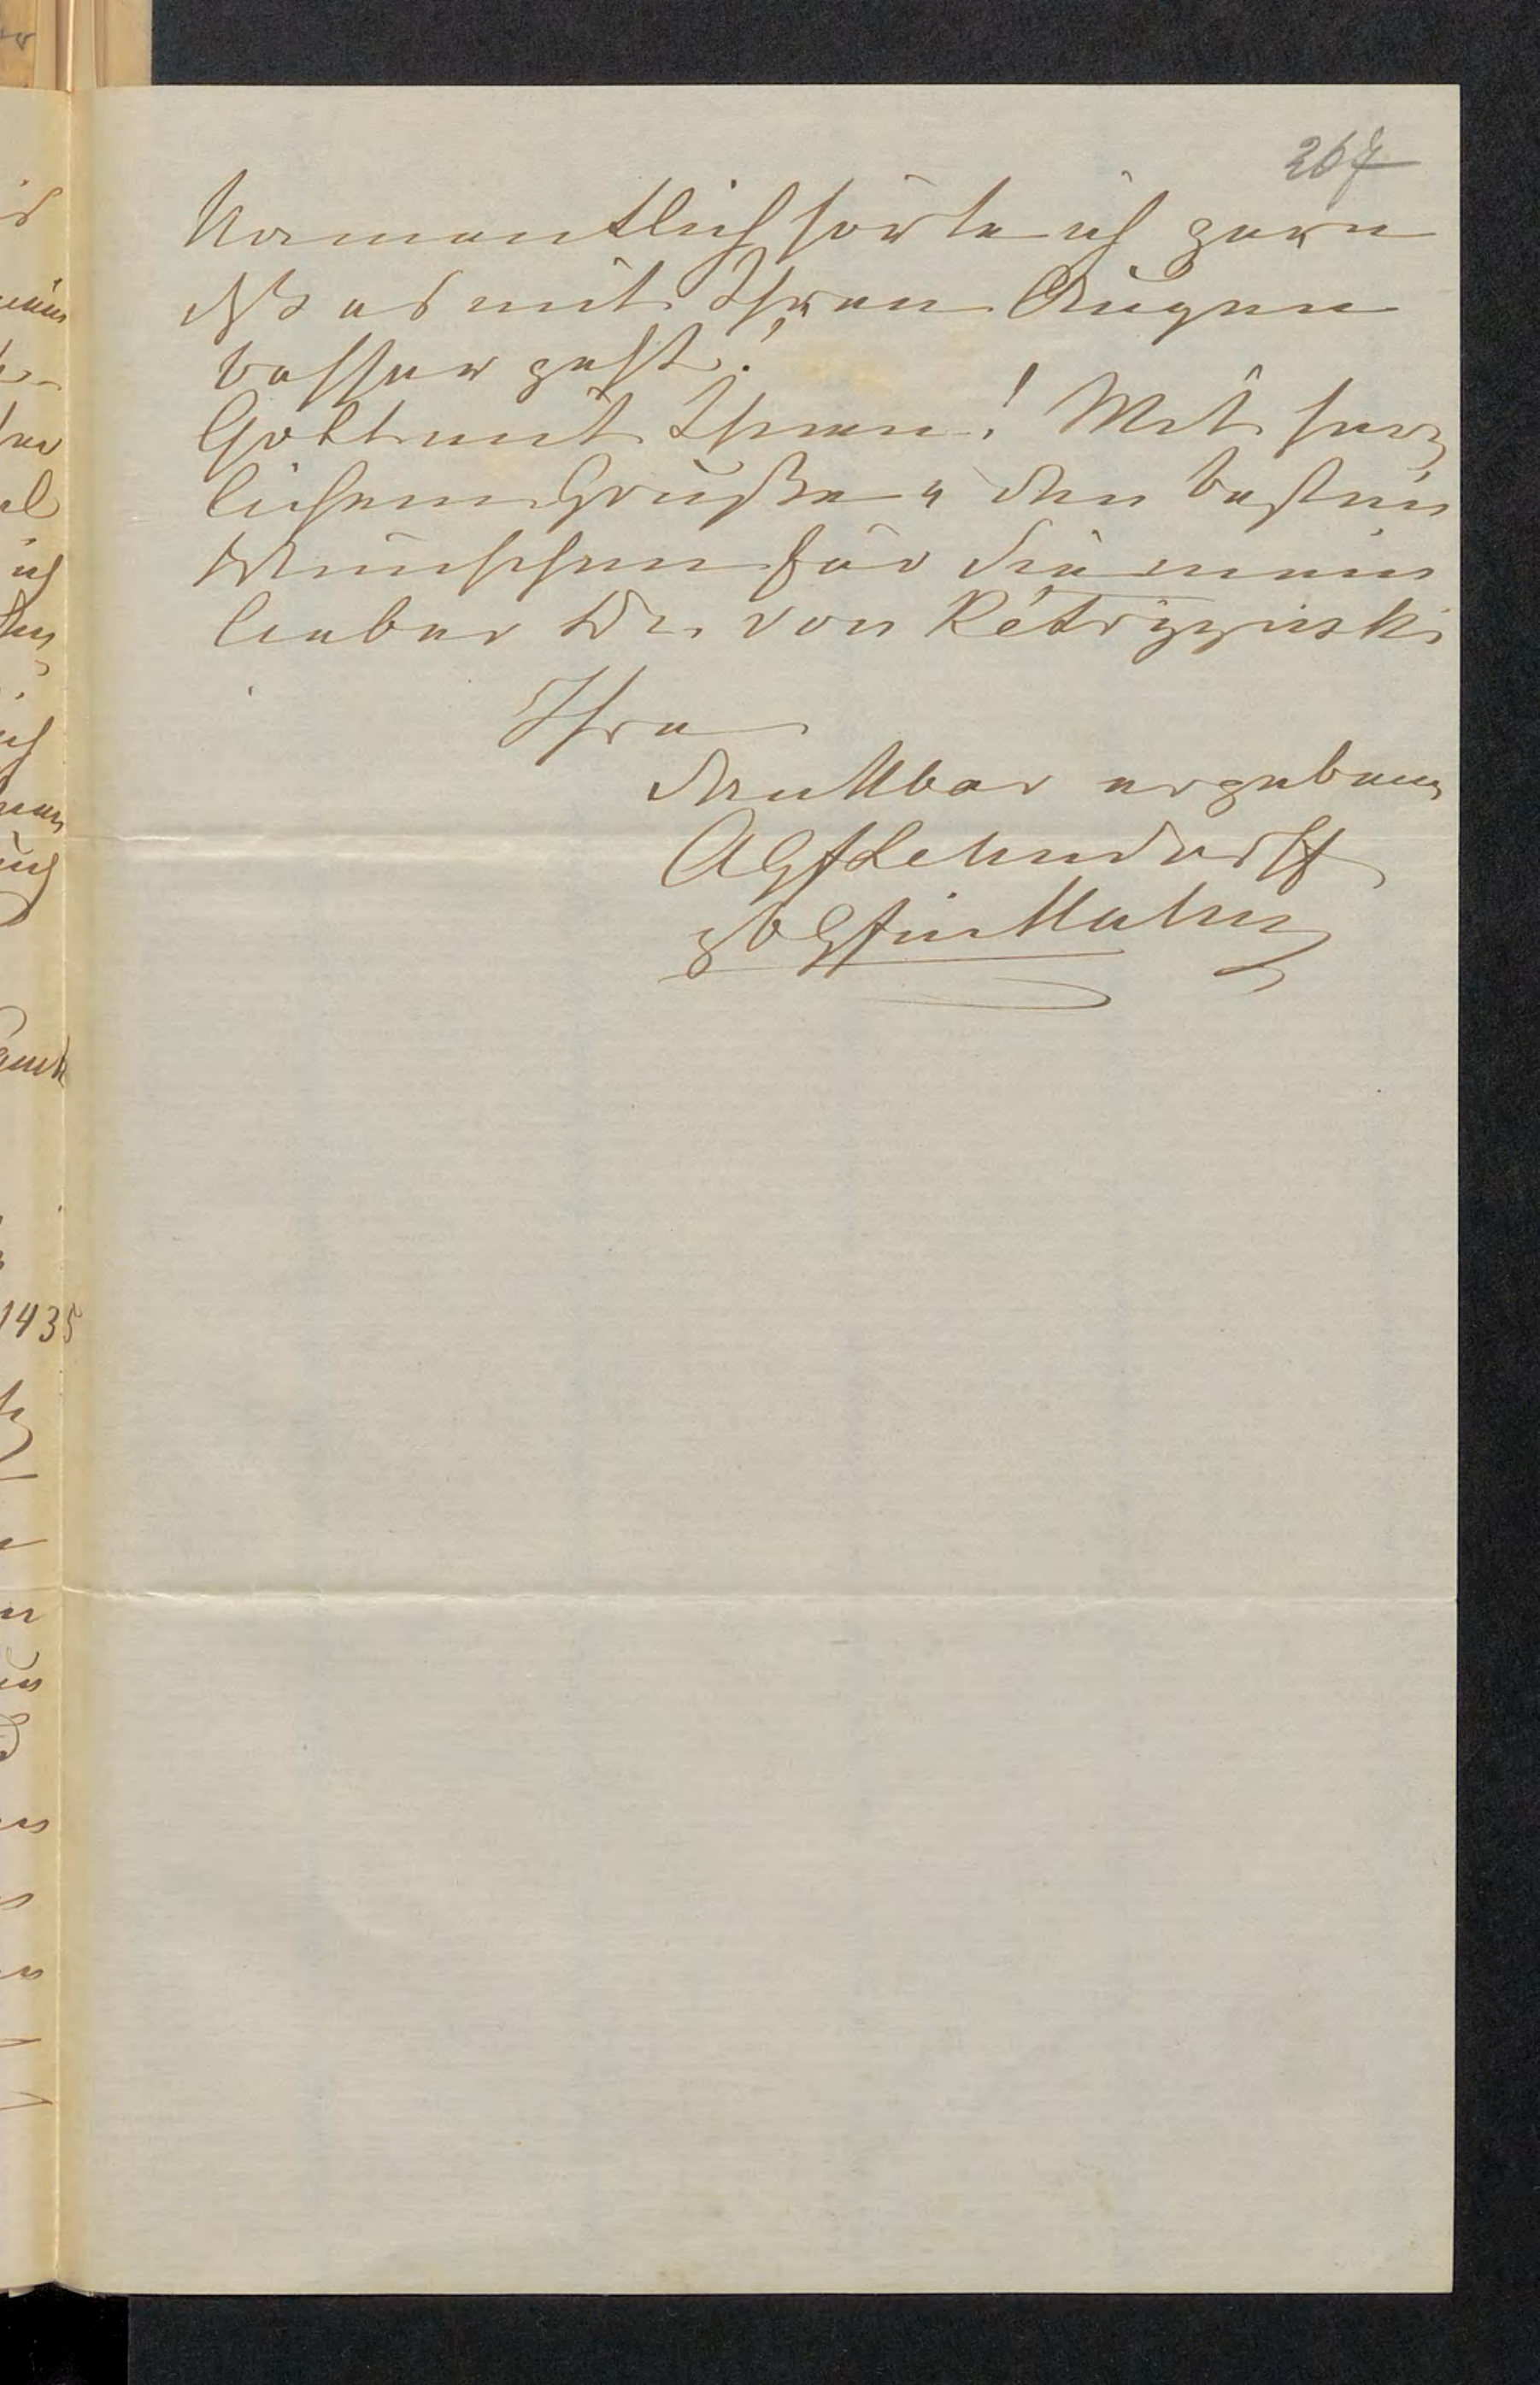 267
Namentlich hörte ich gern
daß es mit Ihren Augen
besser geht!
Gott mit Ihnen! Mit herz
lichem Gruße u den besten
Wünschen für Sie mein
lieber Dr. von Kétrzyński
Ihre
dankbar ergebene
AGfLehndorff
gb Gfin Hahn
1435